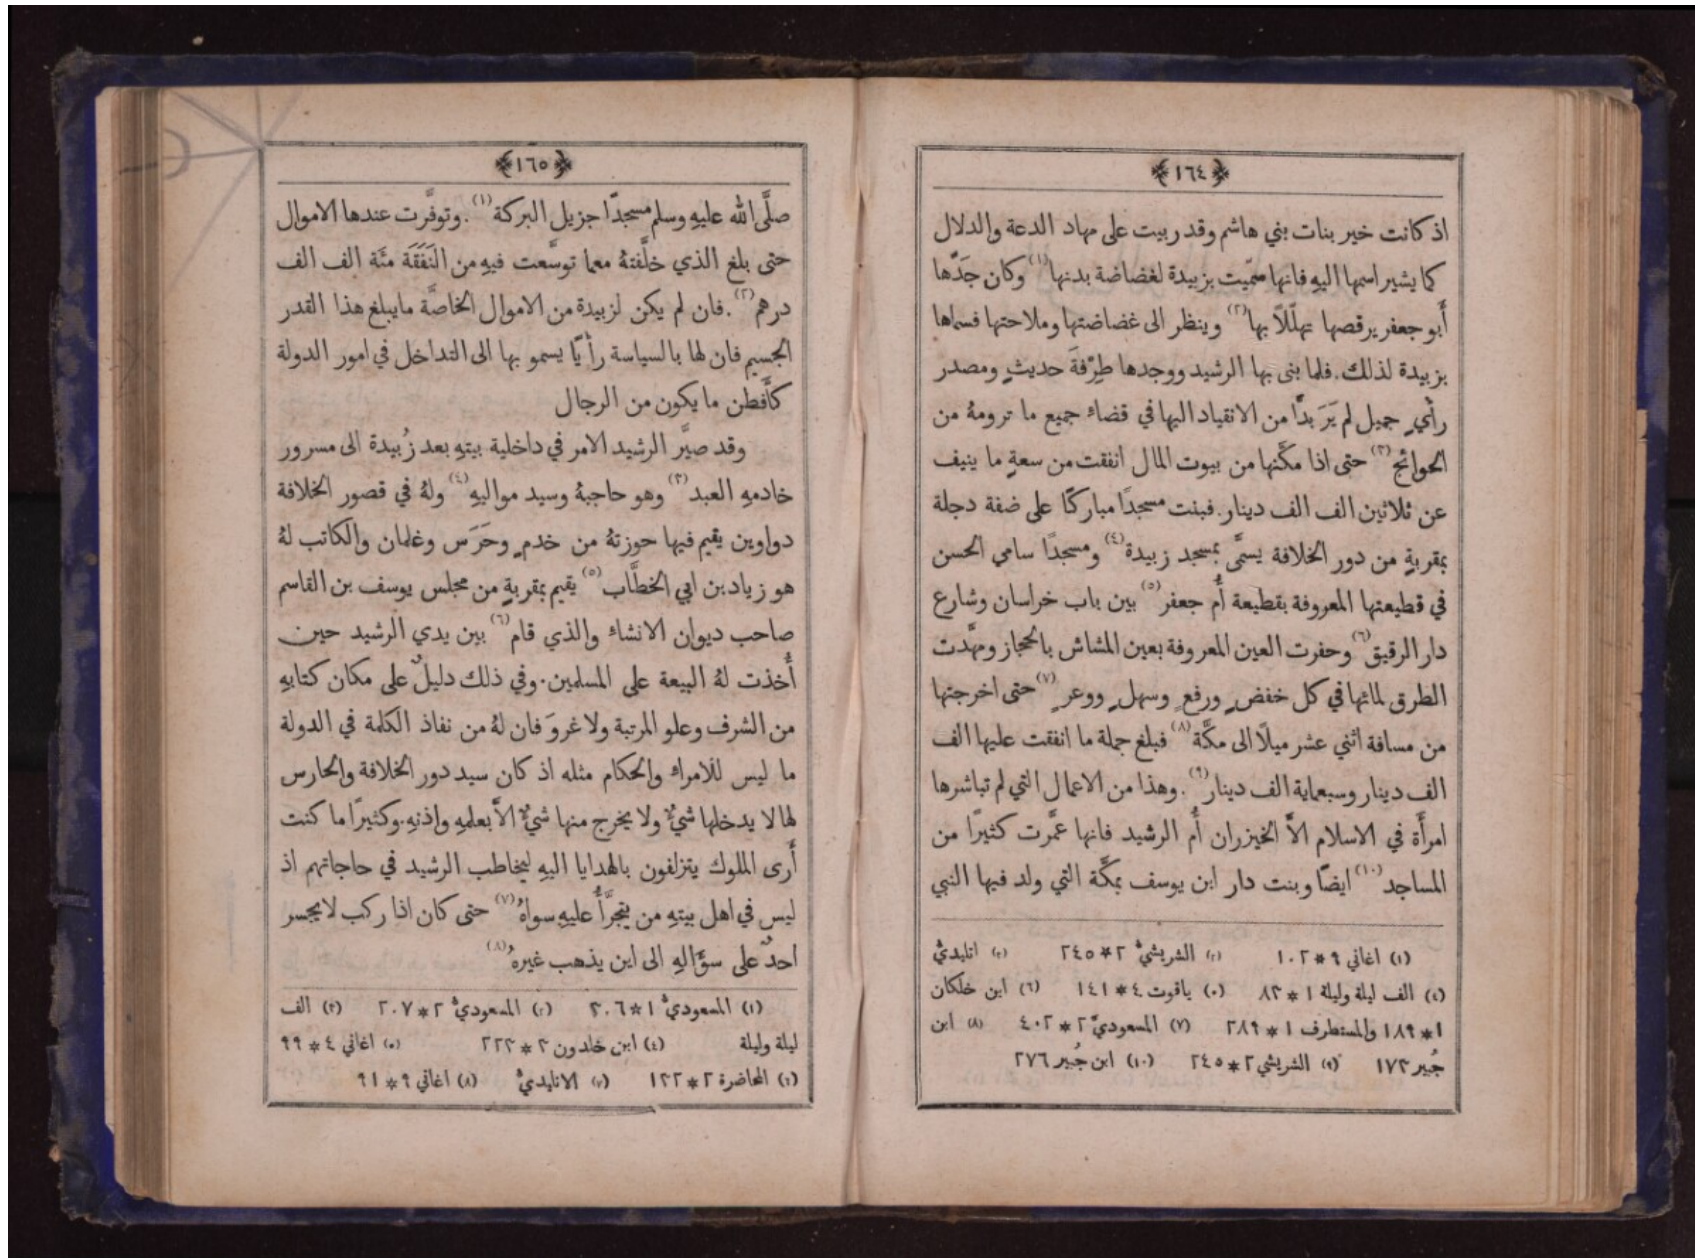 ﴿١٦٤﴾
اذ كانت خير بنات بني هاشم وقد ربيت على مهاد الدعة والدلال
كما يشير اسمها اليهِ فانها سمّيت بزبيدة لغضاضة بدنها (١) وكان جَدّها
أَبو جعفر يرقصها تهلّلاً بها (٢) وينظر الى غضاضتها وملاحتها فسماها
بزبيدة لذلك. فلما بنى بها الرشيد ووجدها طِرْفةَ حديثٍ ومصدر
رأْيٍ جميل لم يَرَ بدًّا من الانقياد اليها في قضاءِ جميع ما ترومهُ من
الحوائج (٣) حتى اذا مكَّنها من بيوت المال انفقت من سعةٍ ما ينيف
عن ثلاثين الف الف دينار. فبنت مسجدًا مباركًا على ضفة دجلة
بمقربةٍ من دور الخلافة يسمَّى بمسجد زبيدة (٤) ومسجدًا سامي الحسن
في قطيعتها المعروفة بقطيعة أُم جعفر (٥) بين باب خراسان وشارع
دار الرقيق (٦) وحفرت العين المعروفة بعين المشاش بالحجاز ومهَّدت
الطرق لمائها في كل خفضٍ ورفعٍ وسهلٍ ووعرٍ (٧) حتى اخرجتها
من مسافة اثني عشر ميلًا الى مكَّة (٨) فبلغ جملة ما انفقت عليها الف
الف دينار وسبعماية الف دينار (٩). وهذا من الاعمال التي لم تباشرها
امرأَة في الاسلام الاَّ الخيزران أُم الرشيد فانها عمَّرت كثيرًا من
المساجد (١٠) ايضًا وبنت دار ابن يوسف بمكَّة التي ولد فيها النبي
(١) اغاني ٩*١٠٢ (٢) الشريشيّ ٢*٢٤٥ (٣) اتليديّ
(٤) الف ليلة وليلة ١*٨٣ (٥) ياقوت ٤*١٤١ (٦) ابن خلكان
١*١٨٩ والمستطرف ١*٢٨٩ (٧) المسعوديّ ٢*٤٠٢ (٨) ابن
جُبير ١٧٣ (٩) الشريشي ٢*٢٤٥ (١٠) ابن جُبير ٢٧٦
﴿١٦٥﴾
صلَّى الله عليهِ وسلم مسجدًا جزيل البركة (١). وتوفَّرت عندها الاموال
حتى بلغ الذي خلَّفتهُ معما توسَّعت فيهِ من النَفَقَة مئة الف الف
درهم (٢). فان لم يكن لزبيدة من الاموال الخاصَّة ما يبلغ هذا القدر
الجسيم فان لها بالسياسة رأْيًا يسمو بها الى التداخل في امور الدولة
كأَفطن ما يكون من الرجال
وقد صيَّر الرشيد الامر في داخلية بيتهِ بعد زُبيدة الى مسرور
خادمهِ العبد (٣) وهو حاجبهُ وسيد مواليهِ (٤) ولهُ في قصور الخلافة
دواوين يقيم فيها حوزتهُ من خدمٍ وحَرَس وغلمان والكاتب لهُ
هو زياد بن ابي الخطَّاب (٥) يقيم بمقربةٍ من مجلس يوسف بن القاسم
صاحب ديوان الانشاءِ والذي قام (٦) بين يدي الرشيد حين
أُخذت لهُ البيعة على المسلمين. وفي ذلك دليلٌ على مكان كتابهِ
من الشرف وعلو المرتبة ولا غروَ فان لهُ من نفاذ الكلمة في الدولة
ما ليس للامراءِ والحكام مثله اذ كان سيد دور الخلافة والحارس
لها لا يدخلها شيءٌ ولا يخرج منها شيءٌ الاَّ بعلمهِ واذنهِ. وكثيرًا ما كنت
أَرى الملوك يتزلفون بالهدايا اليهِ ليخاطب الرشيد في حاجاتهم اذ
ليس في اهل بيتهِ من يتجرَّأُ عليهِ سواهُ (٧) حتى كان اذا ركب لا يجسر
احدٌ على سؤَالهِ الى اين يذهب غيرهُ (٨)
(١) المسعوديّ ١*٣٠٦ (٢) المسعوديّ ٢*٢٠٧ (٣) الف
ليلة وليلة (٤) ابن خلدون ٣*٢٢٣ (٥) اغاني ٤*٩٩
(٦) المحاضرة ٢*١٢٢ (٧) الاتليديّ (٨) اغاني ٩*٩١